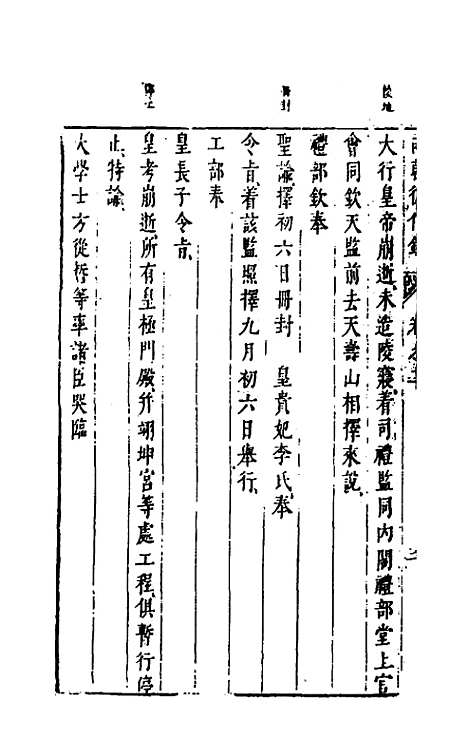 兩朝從信錄　卷之
大行皇帝崩逝未造陵寢着司禮監同內閣禮部堂上官
會同欽天監前去天壽山相擇來說
禮部欽奉
聖諭擇初六日冊封　皇貴妃李氏奉
令旨着該監照擇九月初六日舉行
工部奉
皇長子令旨
皇考崩逝所有皇極門殿并翊坤宮等處工程俱暫行停
止特諭
大學士方從哲等率諸臣哭臨
冊封
停工